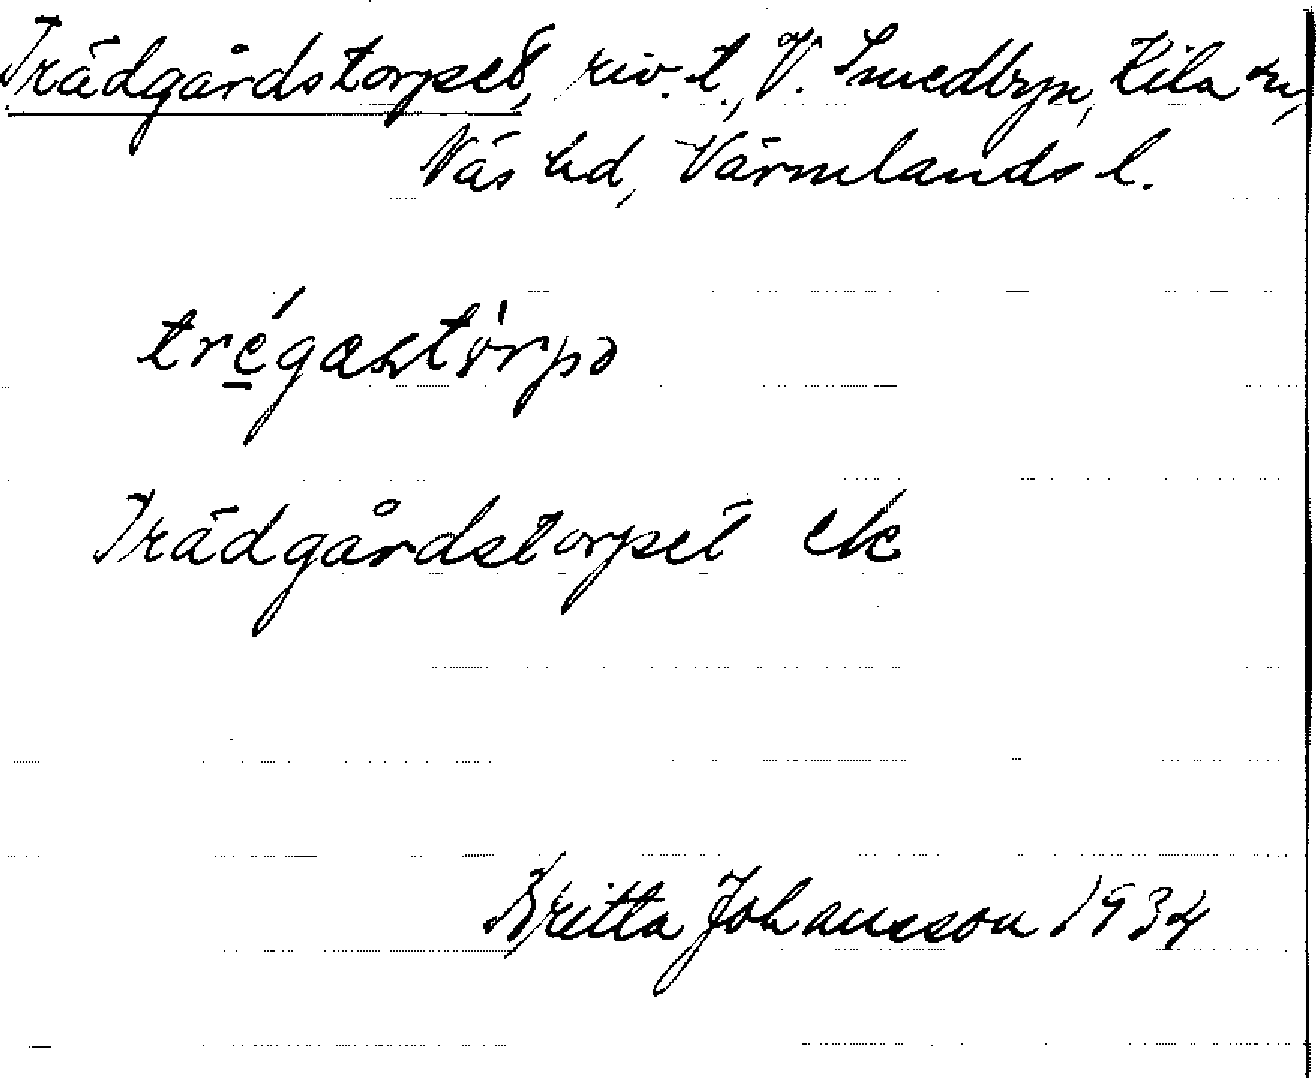 Trädgårdstorpet, riv. t., V. Smedbyn, Kila sn,
Näs hd, Värmlands l.
trégastòrpə
Trädgårdstorpet ek
Britta Johansson 1934